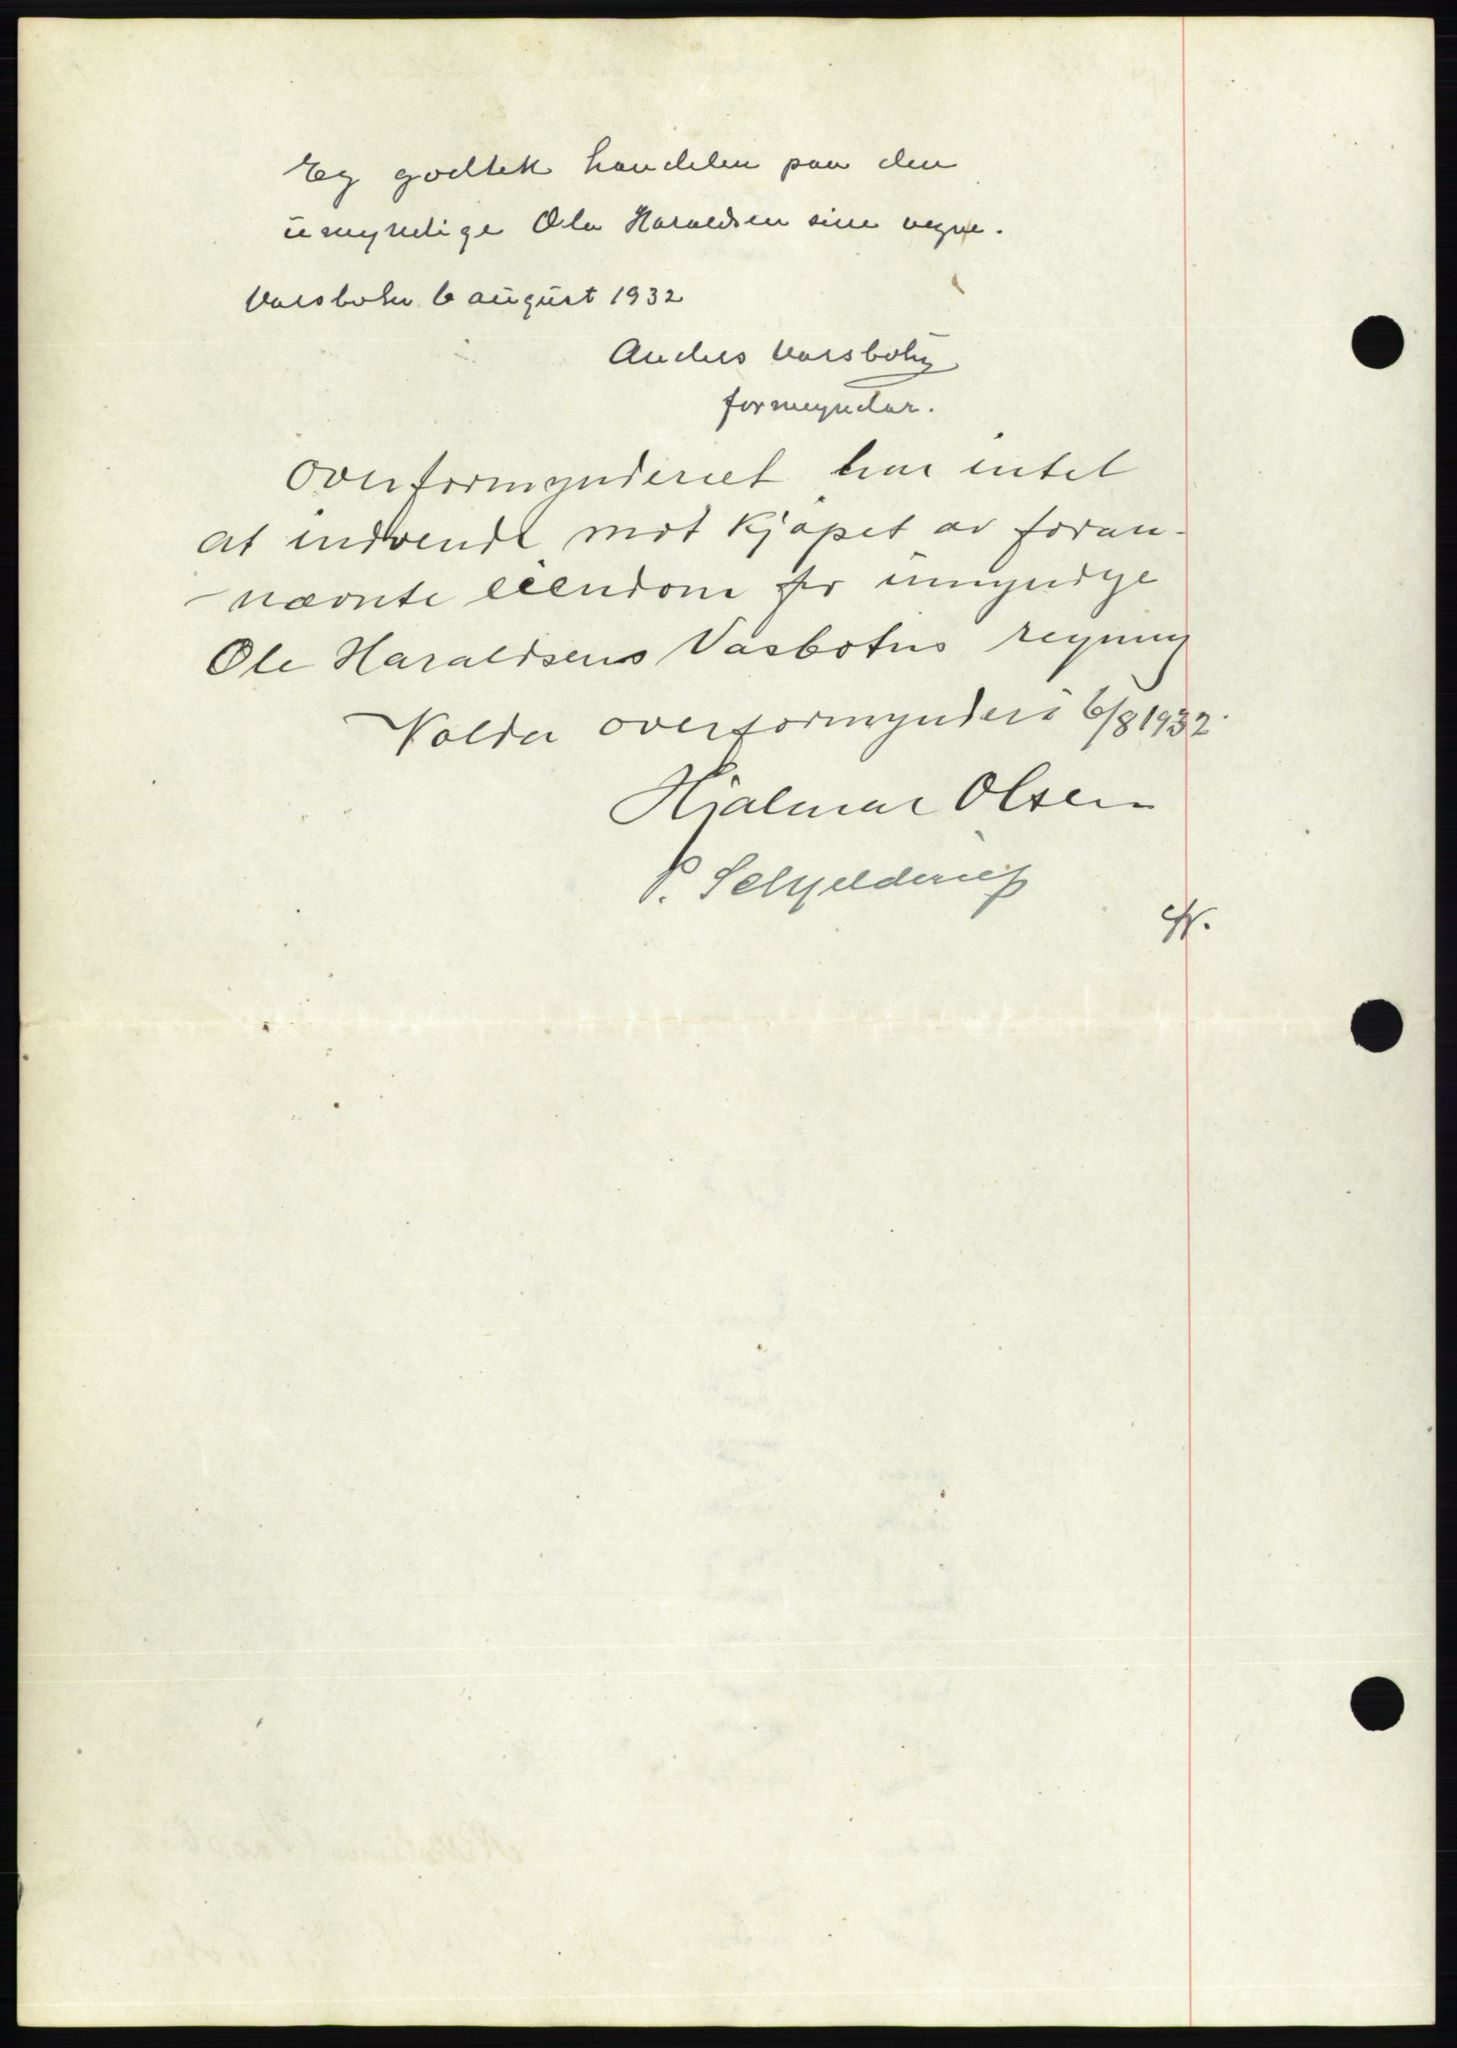 Eg godtek handelen paa den
umyndige Ola Haraldsen sine vegne.
Vassbotn 6 august 1932
Anders Vassbotn
formyndar.
Overformynderiet har intet
at indvende mot kjøpet av foran-
nævnte eiendom for umyndige
Ole Haraldsens Vasbotns regning
Volda overformynderi 6/8 1932.
Hjalmar Olsen
P. Schjelderup